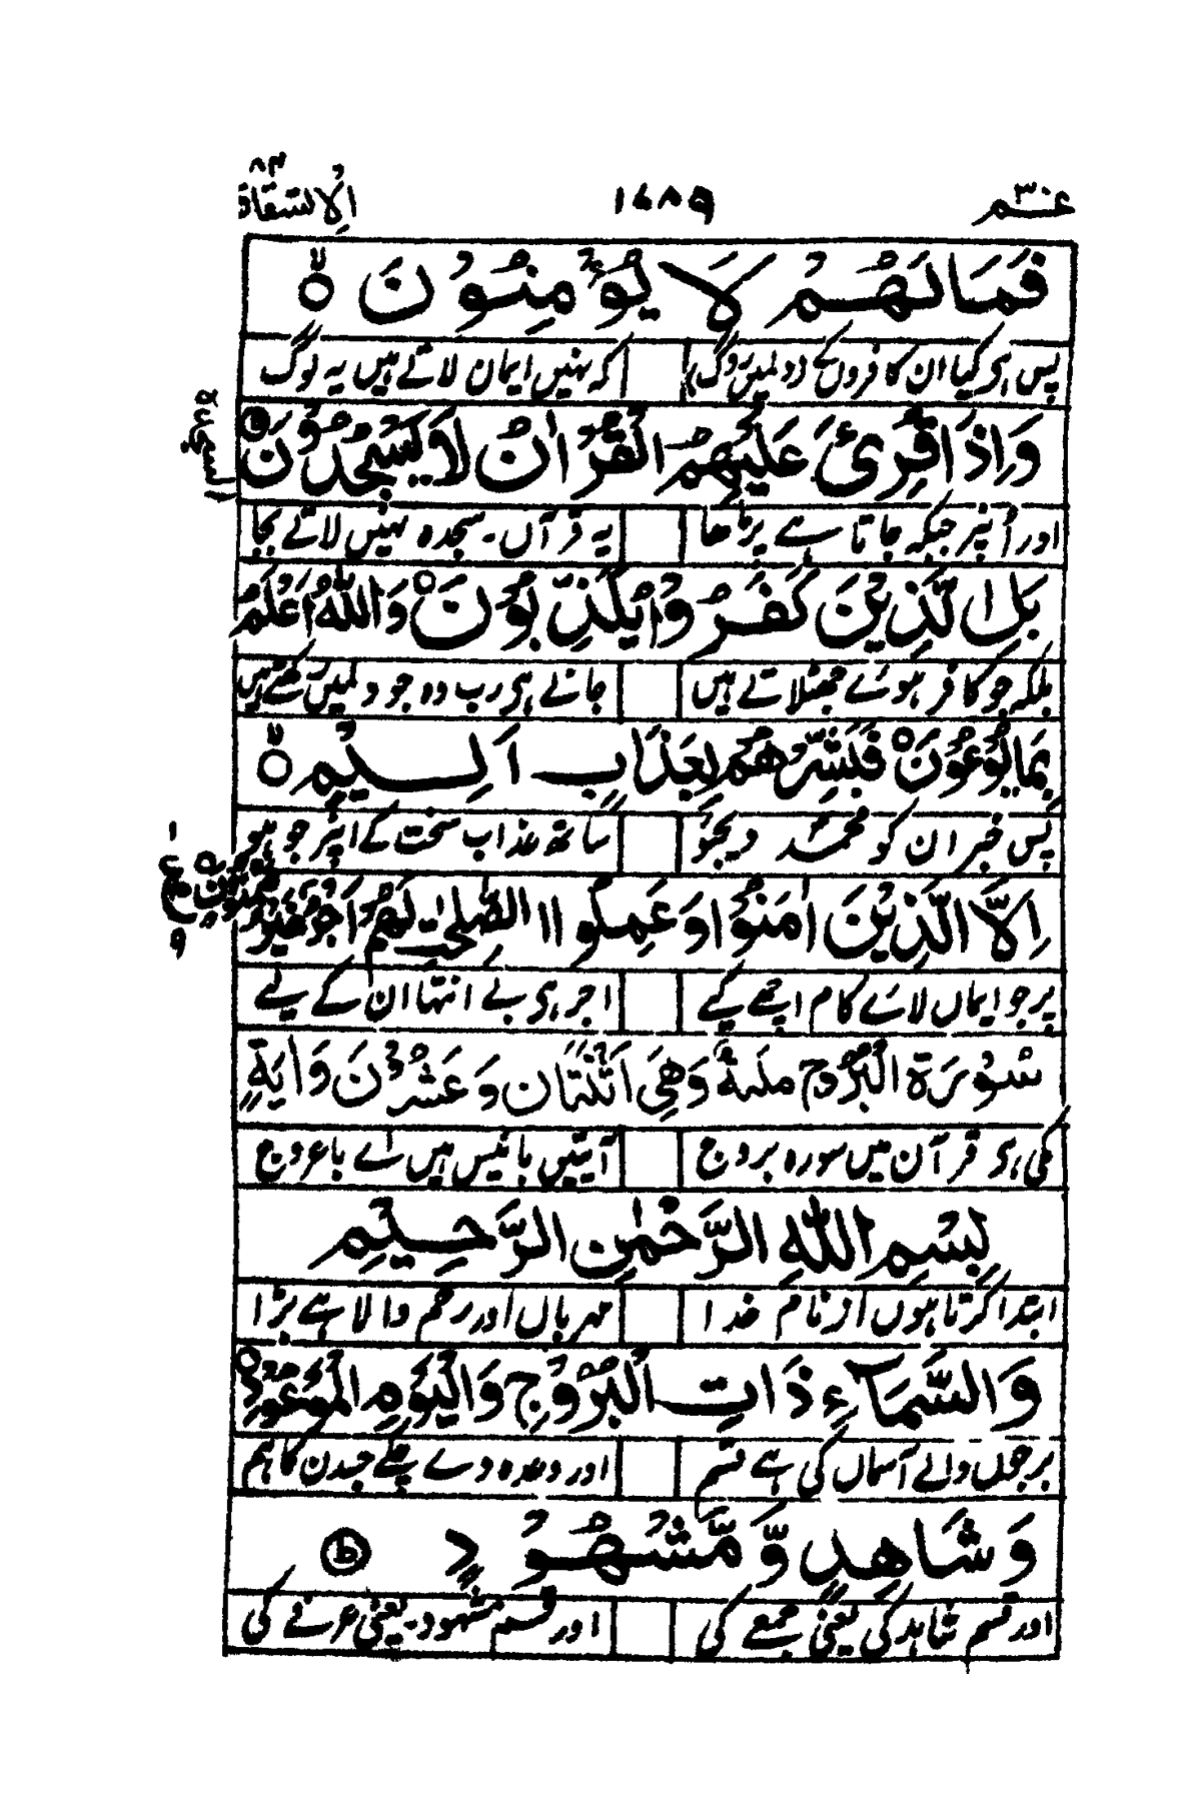 عم ٣٠ ١٧٨٩ الانشقاق ٨٤
فَمَا لَهُمْ لَا يُؤْمِنُوْنَ ۙ
پس ہی کیا ان کافروں کے دلمیں روگ کہ نہیں ایمان لاتے ہیں یہ لوگ
وَاِذَا قُرِئَ عَلَيْهِمُ الْقُرْاٰنُ لَا يَسْجُدُوْنَ ط
السجدة
اور اُنپر جبکہ جاتا ہے پڑھا یہ قرآں۔ سجدہ نہیں لاتے بجا
بَلِ الَّذِيْنَ كَفَرُوْا يُكَذِّبُوْنَ وَاللّٰهُ اَعْلَمُ
بلکہ جو کافر ہوئے جھٹلاتے ہیں جانے ہی رب وہ جو دلمیں رکھتے ہیں
بِمَا يُوْعُوْنَ فَبَشِّرْهُمْ بِعَذَابٍ اَلِيْمٍ ۙ
پس خبر ان کو محمد دیجئو ساتھ عذاب سخت کے اُنپر جو ہو
اِلَّا الَّذِيْنَ اٰمَنُوْا وَعَمِلُوا الصّٰلِحٰتِ لَهُمْ اَجْرٌ غَيْرُ مَمْنُوْنٍ
پر جو ایماں لائے کام اچھے کیے اجر ہی بے انتہا ان کے لیے
سُوْرَة الْبُرُوْج مکیۃٌ وَهِيَ اثْنَتَان وَعَشْرُوْنَ اٰيَةً
مکی ہی قرآن میں سورہ بروج آیتیں بائیس ہیں اے باعروج
بِسْمِ اللّٰهِ الرَّحْمٰنِ الرَّحِيْمِ
ابتدا کرتا ہوں از نام خدا مہرباں اور رحم والا ہے بڑا
وَالسَّمَآءِ ذَاتِ الْبُرُوْجِ وَالْيَوْمِ الْمَوْعُوْدِ
برجوں والے آسماں کی ہے قسم اور وعدہ دے چکے جسدن کا ہم
وَشَاهِدٍ وَّمَشْهُوْدٍ ط
اور قسم شاہد کی یعنی جمعے کی اور قسم مشہود۔ یعنی عرفے کی